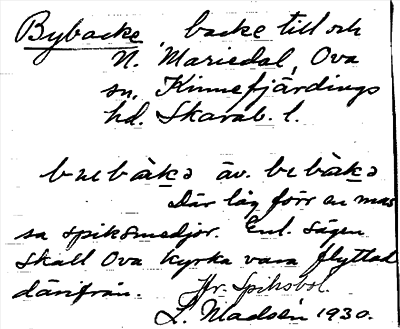 Bybacke, backe till och
N. Mariedal, Ova
sn, Kinnefjärdings
hd. Skarab. l.
bẏebàkə äv. bebàkə
Där låg förr en mas
sa spiksmedjor. Enl. sägen
skall Ova kyrka vara flyttad
därifrån. Jfr. Spikabol.
L. Madsén 1930.